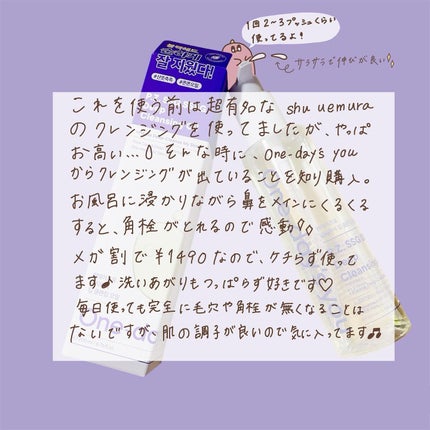 1回2~3プッシュくらい
使ってるよ!
サラサラで伸びが良い
잘 지웠대
これを使う前は超有名な shu uemura
のクレンジングを使ってましたが、やっぱ
お高い...そんな時に、One-day's you
からクレンジングが出ていることを知り購入。
お風呂に浸かりながら鼻をメインにくるくる
すると、角栓がとれるので感動!
メガ割で¥1490なので、ケチらず使って
ます♪洗いあがりもつっぱらず好きです♡
毎日使っても完全に毛穴や角栓が無くなることは
ないですが、肌の調子が良いので気に入ってます♫
Cleansing